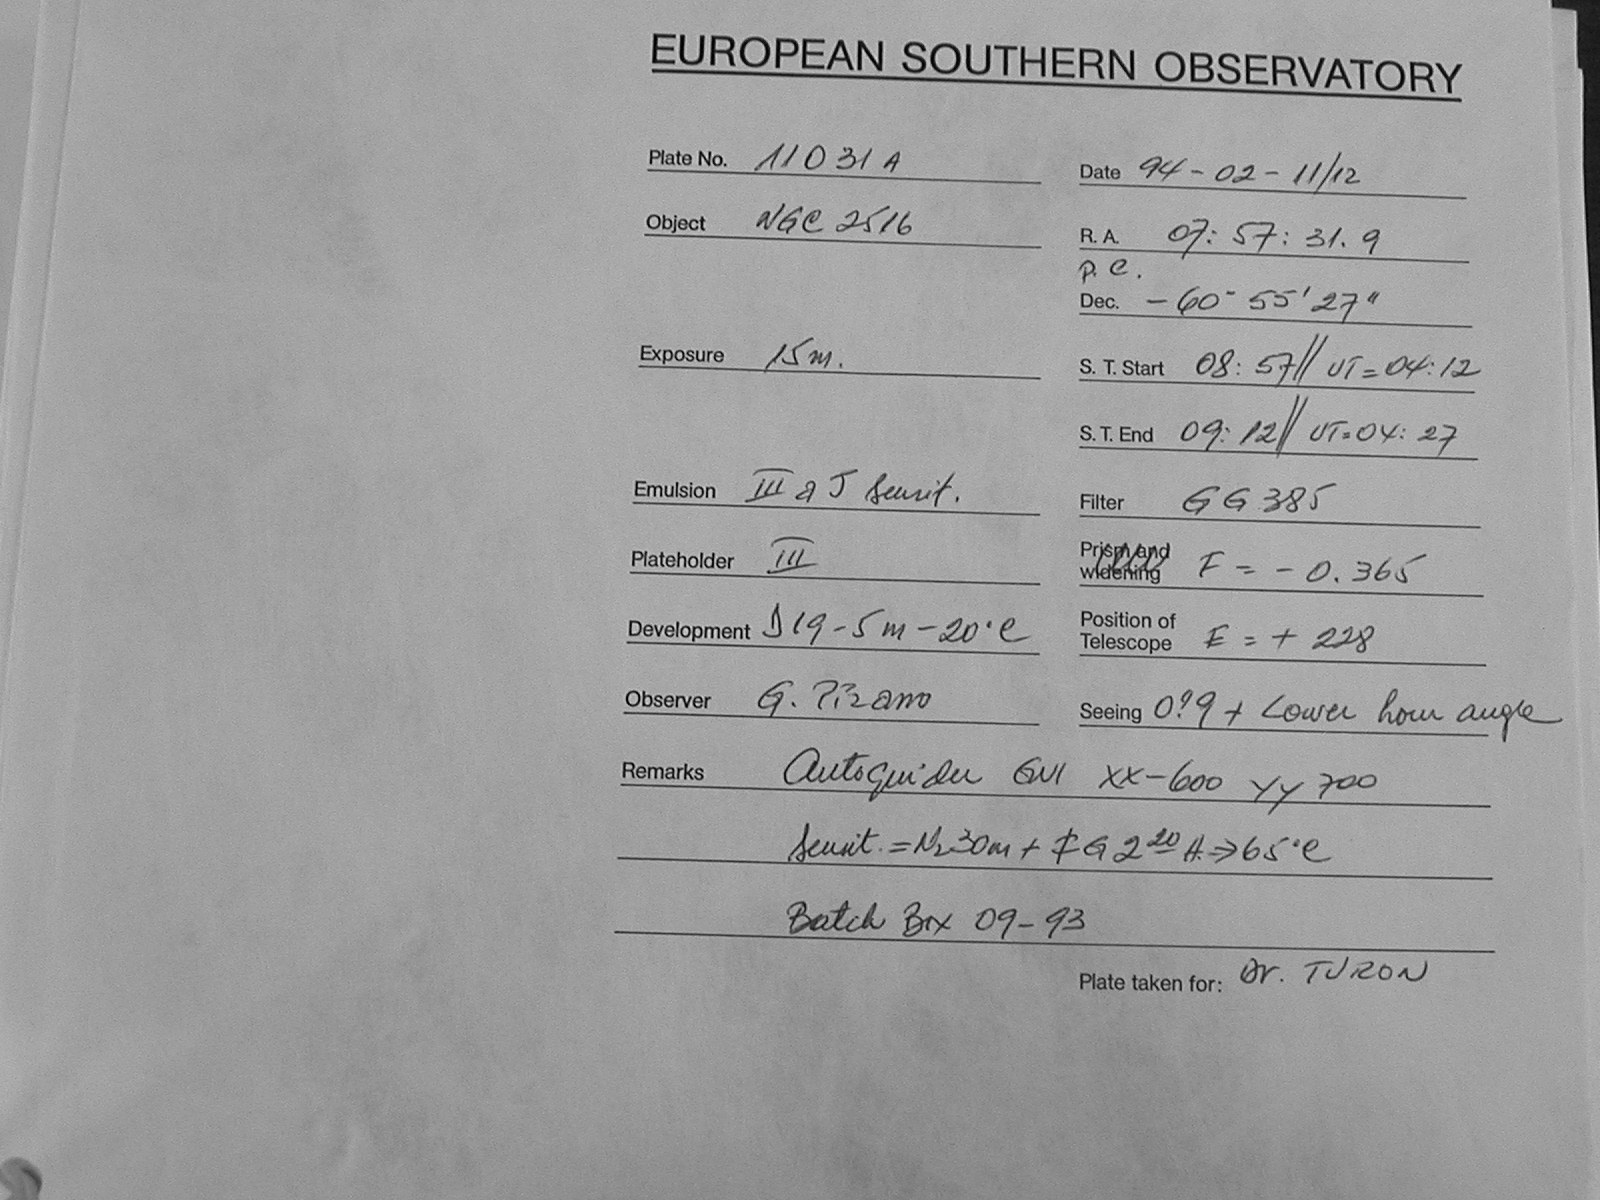 EUROPEAN SOUTHERN OBSERVATORY
Plate No. 11031A
Date 94-02-11/12
Object NGC 2516
R. A. 07: 57: 31. 9
p. e.
Dec. -60° 55' 27"
Exposure 15m.
S. T. Start 08: 57// UT = 04:12
S. T. End 09: 12// UT=04: 27
Emulsion III a J Sensit.
Filter GG 385
Plateholder III
Prism and widening F = - 0.365
Development D19-5m-20°C
Position of Telescope E = + 228
Observer G. Pizarro
Seeing 0!9 + Lower hour angle
Remarks Autoguider XX-600 YY 700
Sensit. = N2 30m + G 2 20 H. ⇒ 65°C
Batch Box 09-93
Plate taken for: Dr. TURON